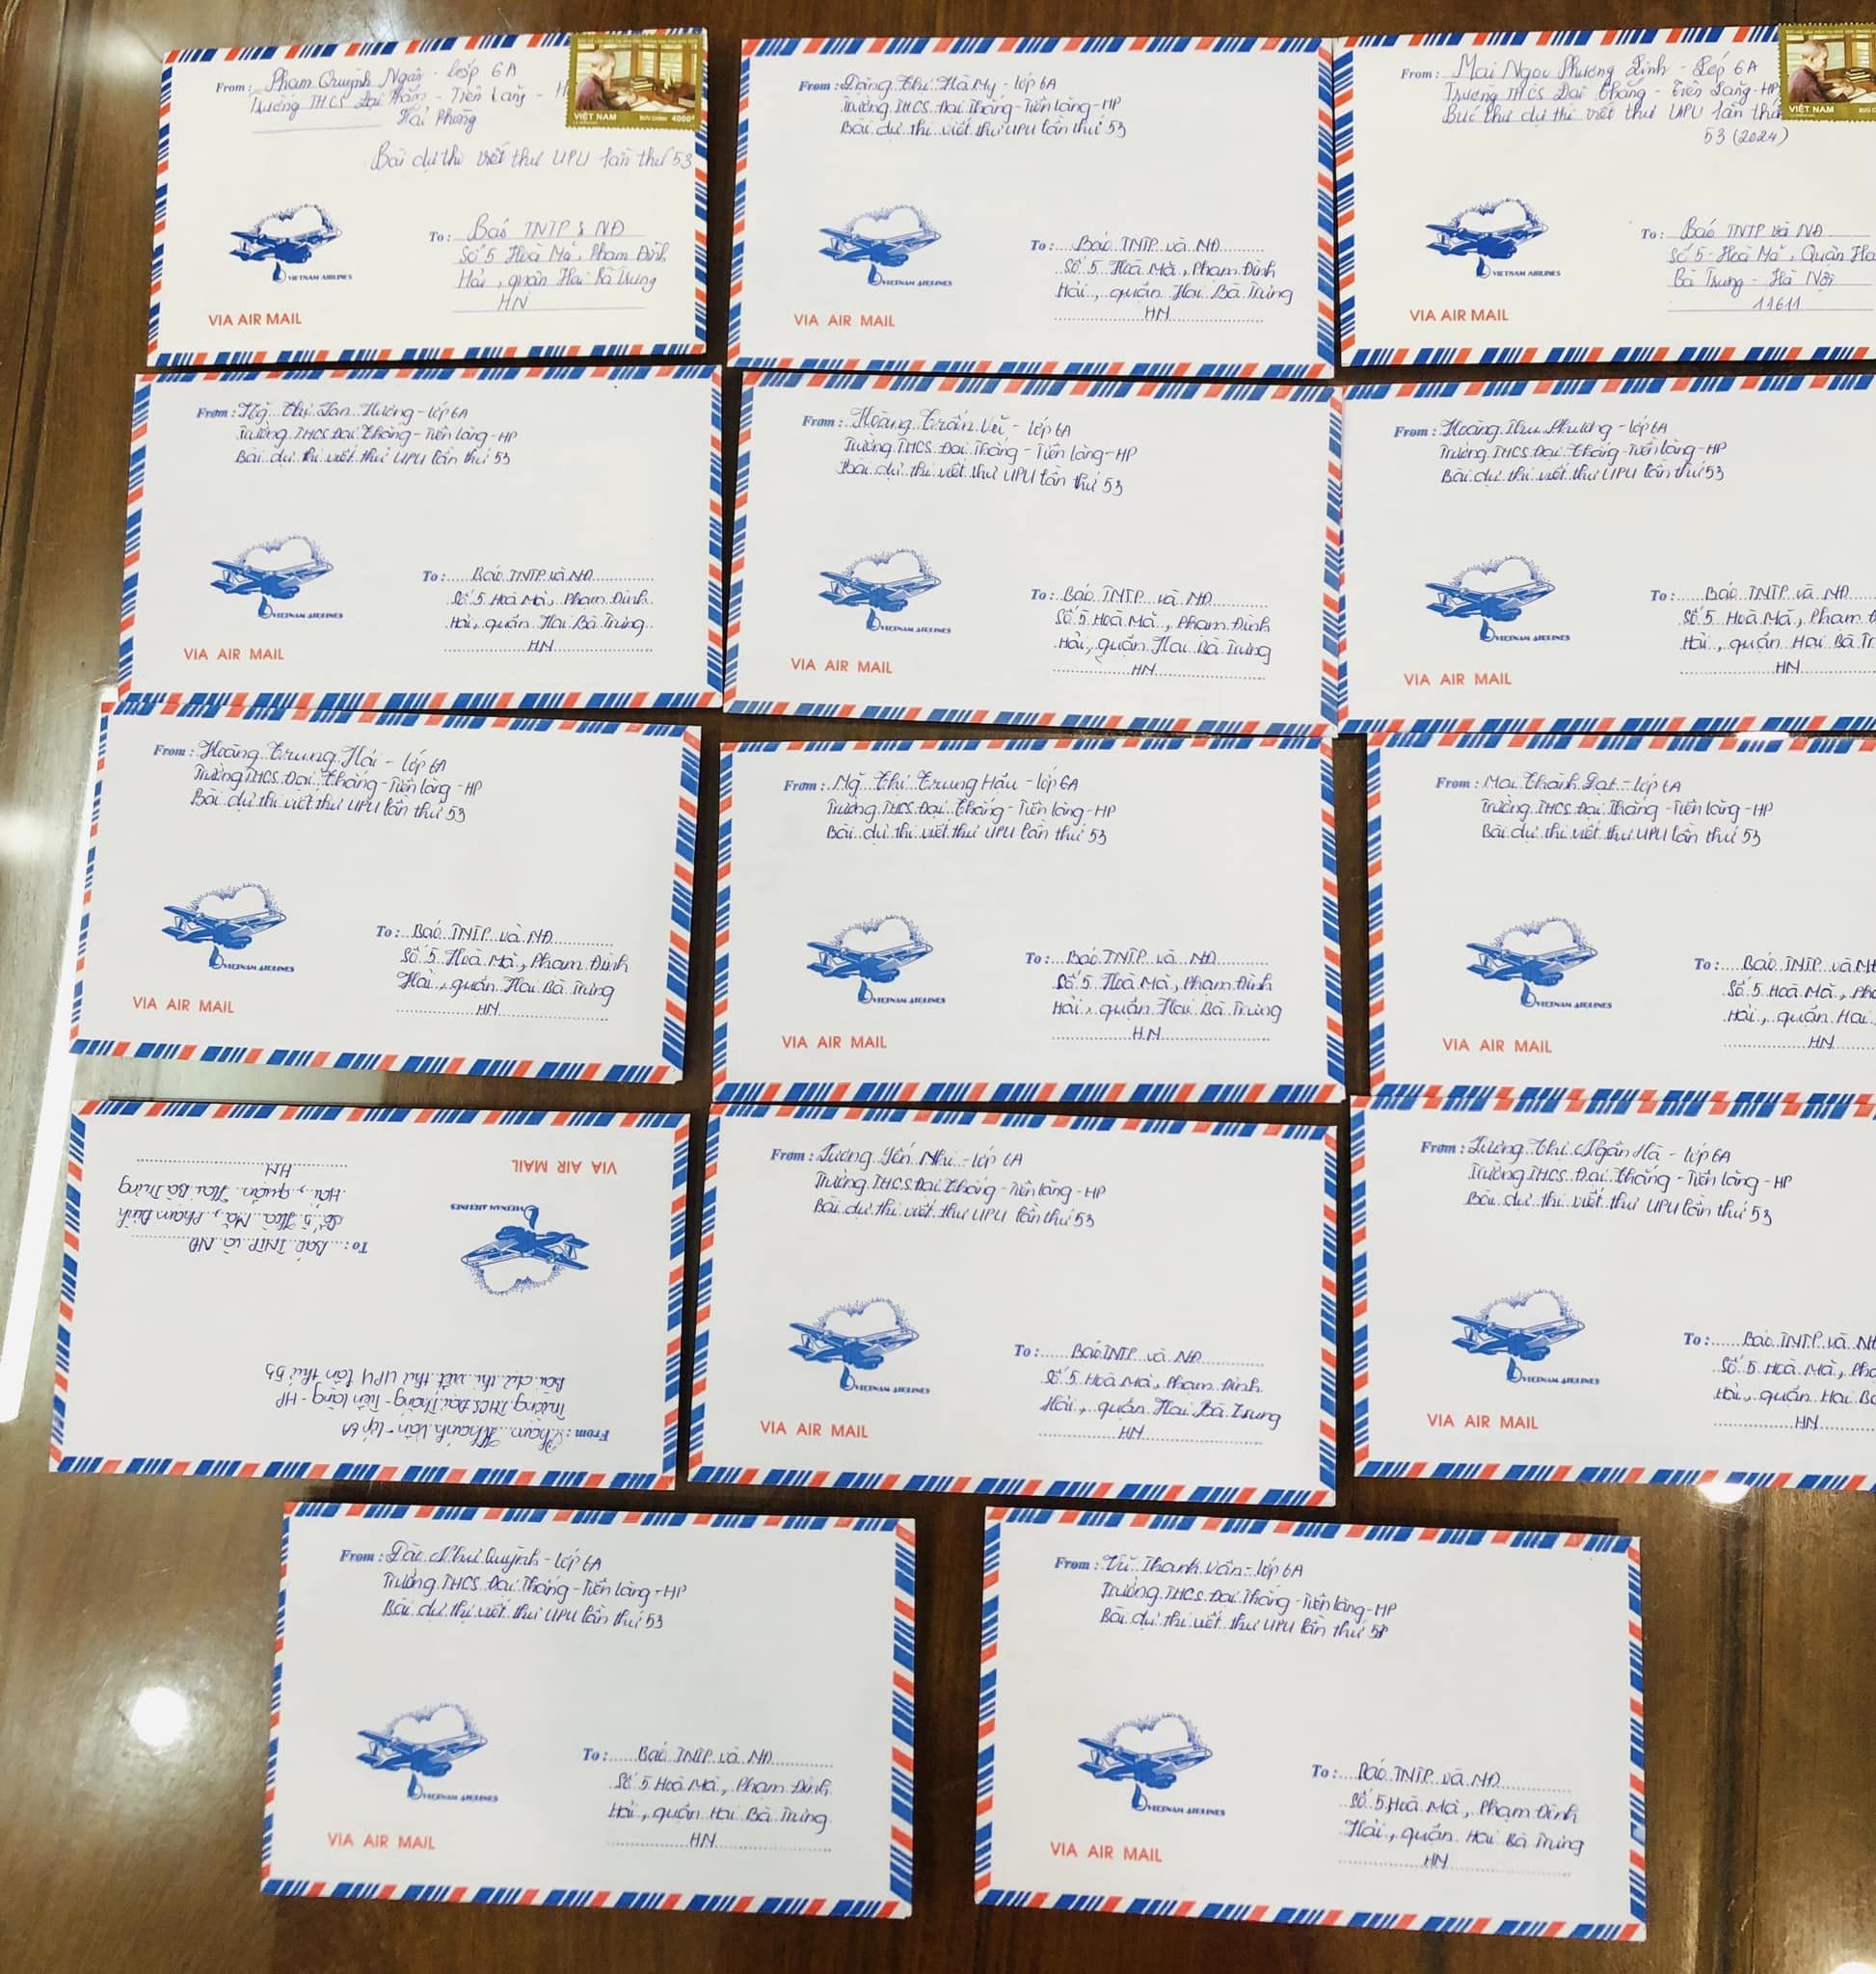 From: Phạm Quỳnh Ngân - Lớp 6A
Trường THCS Đại Thắng - Tiên Lãng - H
Hải Phòng
VIỆT NAM
BƯU CHÍNH 4000đ
Bài dự thi viết thư UPU lần thứ 53
To: Báo TNTP & NĐ
Số 5 Hoà Mã, Phạm Đình
Hải, quận Hai Bà Trưng
HN
VIETNAM AIRLINES
VIA AIR MAIL
From: Đặng Thị Hà My - lớp 6A
Trường THCS Đại Thắng - Tiên Lãng - HP
Bài dự thi viết thư UPU lần thứ 53
To: Báo TNTP và NĐ
Số 5 Hoà Mã, Phạm Đình
Hải, quận Hai Bà Trưng
HN
VIETNAM AIRLINES
VIA AIR MAIL
From: Mai Ngọc Phương Linh - Lớp 6A
Trường THCS Đại Thắng - Tiên Lãng - HP
Bức thư dự thi viết thư UPU lần thứ
53 (2024)
VIỆT NAM
To: Báo TNTP và NĐ
Số 5 - Hoà Mã, Quận Ha
Bà Trưng - Hà Nội
11611
VIETNAM AIRLINES
VIA AIR MAIL
From: Ng Thị Lan Hương - lớp 6A
Trường THCS Đại Thắng - Tiên Lãng - HP
Bài dự thi viết thư UPU lần thứ 53
To: Báo TNTP và NĐ
Số 5 Hoà Mã, Phạm Đình
Hải, quận Hai Bà Trưng
HN
VIETNAM AIRLINES
VIA AIR MAIL
From: Hoàng Trần Vũ - lớp 6A
Trường THCS Đại Thắng - Tiên Lãng - HP
Bài dự thi viết thư UPU lần thứ 53
To: Báo TNTP và NĐ
Số 5 Hoà Mã, Phạm Đình
Hải, quận Hai Bà Trưng
HN
VIETNAM AIRLINES
VIA AIR MAIL
From: Hoàng Thu Phương - lớp 6A
Trường THCS Đại Thắng - Tiên Lãng - HP
Bài dự thi viết thư UPU lần thứ 53
To: Báo TNTP và NĐ
Số 5 Hoà Mã, Phạm Đ
Hải, quận Hai Bà Tr
HN
VIETNAM AIRLINES
VIA AIR MAIL
From: Hoàng Trung Hải - lớp 6A
Trường THCS Đại Thắng - Tiên Lãng - HP
Bài dự thi viết thư UPU lần thứ 53
To: Báo TNTP và NĐ
Số 5 Hoà Mã, Phạm Đình
Hải, quận Hai Bà Trưng
HN
VIETNAM AIRLINES
VIA AIR MAIL
From: Ng Thị Trung Hậu - lớp 6A
Trường THCS Đại Thắng - Tiên Lãng - HP
Bài dự thi viết thư UPU lần thứ 53
To: Báo TNTP và NĐ
Số 5 Hoà Mã, Phạm Đình
Hải, quận Hai Bà Trưng
HN
VIETNAM AIRLINES
VIA AIR MAIL
From: Mai Thành Đạt - lớp 6A
Trường THCS Đại Thắng - Tiên Lãng - HP
Bài dự thi viết thư UPU lần thứ 53
To: Báo TNTP và NĐ
Số 5 Hoà Mã, Phạ
Hải, quận Hai
HN
VIETNAM AIRLINES
VIA AIR MAIL
From: Phạm Khánh Vân - lớp 6A
Trường THCS Đại Thắng - Tiên Lãng - HP
Bài dự thi viết thư UPU lần thứ 53
To: Báo TNTP và NĐ
Số 5 Hoà Mã, Phạm Đình
Hải, quận Hai Bà Trưng
HN
VIETNAM AIRLINES
VIA AIR MAIL
From: Lương Yến Nhi - lớp 6A
Trường THCS Đại Thắng - Tiên Lãng - HP
Bài dự thi viết thư UPU lần thứ 53
To: Báo TNTP và NĐ
Số 5 Hoà Mã, Phạm Đình
Hải, quận Hai Bà Trưng
HN
VIETNAM AIRLINES
VIA AIR MAIL
From: Lương Thị Ngân Hà - lớp 6A
Trường THCS Đại Thắng - Tiên Lãng - HP
Bài dự thi viết thư UPU lần thứ 53
To: Báo TNTP và NĐ
Số 5 Hoà Mã, Phạ
Hải, quận Hai Bà
HN
VIETNAM AIRLINES
VIA AIR MAIL
From: Đào Như Quỳnh - lớp 6A
Trường THCS Đại Thắng - Tiên Lãng - HP
Bài dự thi viết thư UPU lần thứ 53
To: Báo TNTP và NĐ
Số 5 Hoà Mã, Phạm Đình
Hải, quận Hai Bà Trưng
HN
VIETNAM AIRLINES
VIA AIR MAIL
From: Vũ Thanh Vân - lớp 6A
Trường THCS Đại Thắng - Tiên Lãng - HP
Bài dự thi viết thư UPU lần thứ 53
To: Báo TNTP và NĐ
Số 5 Hoà Mã, Phạm Đình
Hải, quận Hai Bà Trưng
HN
VIETNAM AIRLINES
VIA AIR MAIL